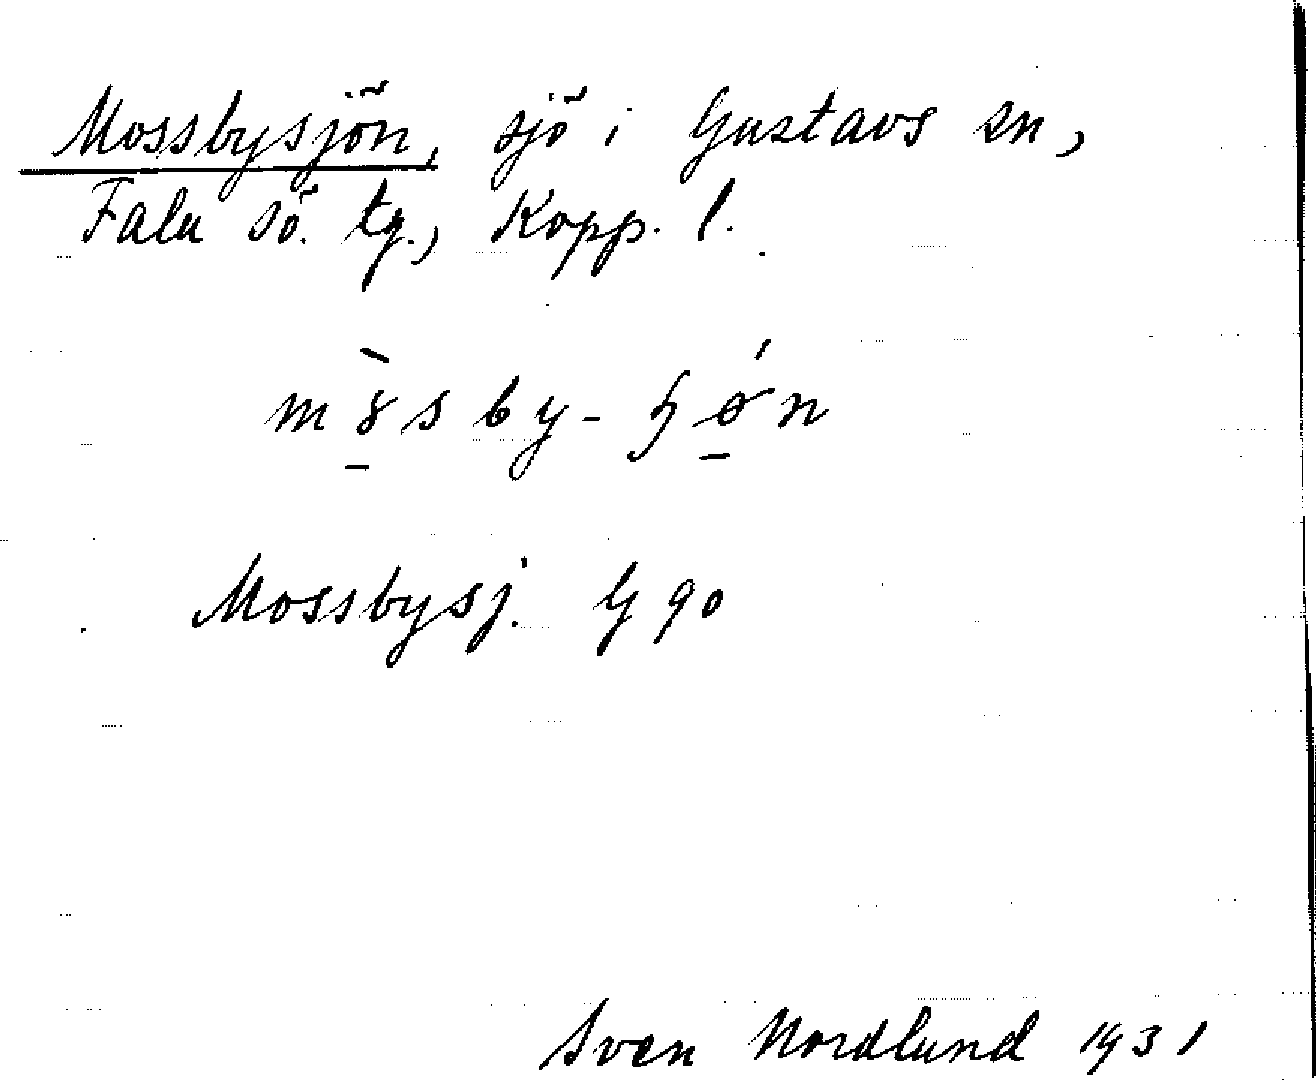 Mossbysjön, sjö i Gustavs sn,
Falu sö. tg., Kopp. l.
Mossbysj. G 90
Sven Nordlund 1931